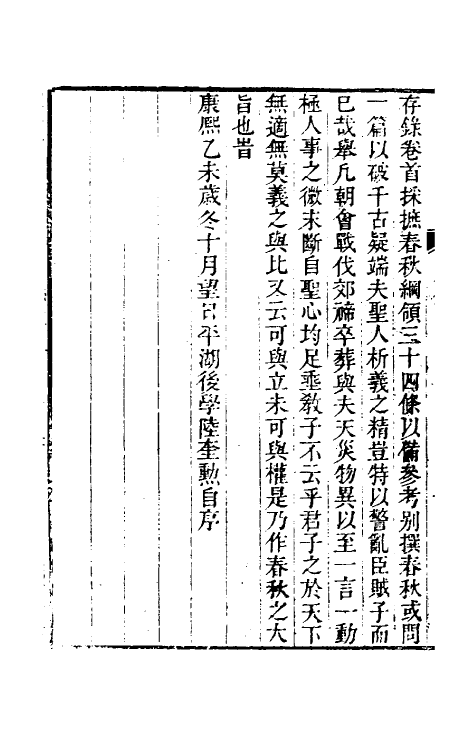 存錄卷首採摭春秋綱領三十四條以備參考別撰春秋或問
一篇以破千古疑端夫聖人析義之精豈特以警亂臣賊子而
已哉舉凡朝會戰伐郊禘卒葬與夫天災物異以至一言一動
極人事之微末斷自聖心均足埀敎子不云乎君子之於天下
無適無莫義之與比又云可與立未可與權是乃作春秋之大
旨也旹
康熙乙未歲冬十月望日平湖後學陸奎勲自序